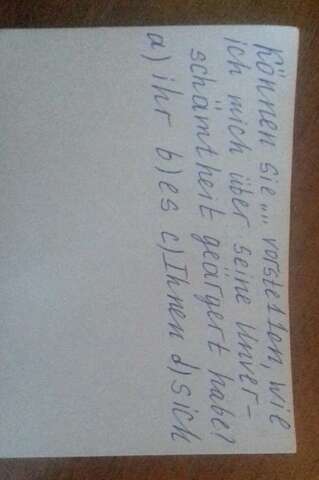 Können sie... vorstellen, wie
ich mich über seine Unver-
schämtheit geärgert habe?
a) ihr b) es c) Ihnen d) sich